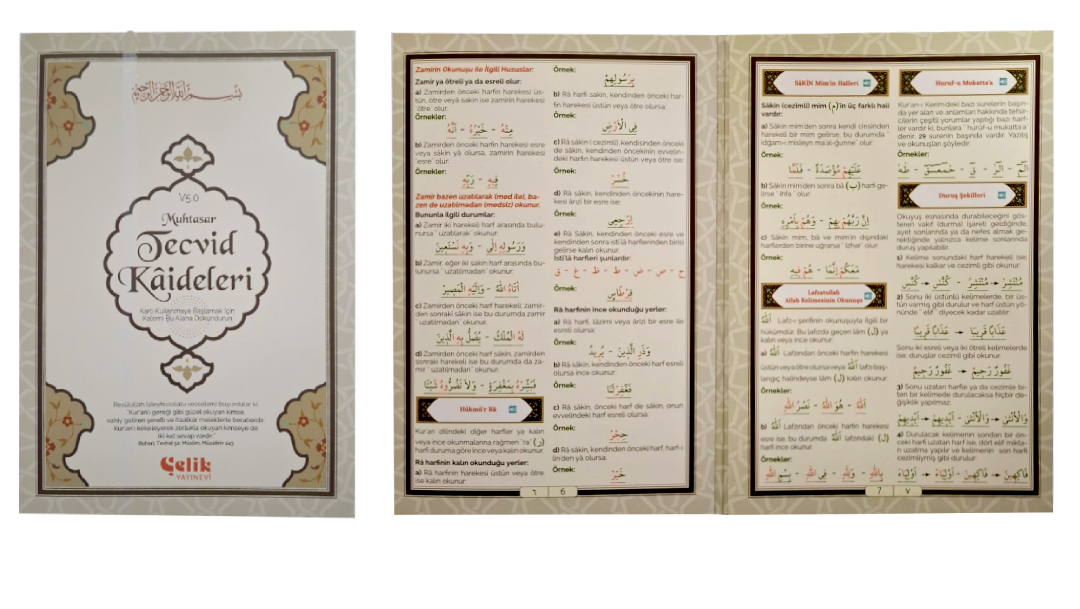 بِسْمِ اللهِ الرَّحْمٰنِ الرَّحِيمِ
V5.0
Muhtasar
Tecvid
Kâideleri
Kartı Kullanmaya Başlamak İçin
Kalemi Bu Alana Dokundurun
Resûlullah (aleyhissalatu vesselâm) buyurdular ki:
"Kur'an'ı gereği gibi güzel okuyan kimse,
vahiy getiren şerefli ve itaatkâr meleklerle beraberdir.
Kur'an'ı kekeleyerek zorlukla okuyan kimseye de
iki kat sevap vardır."
Buhari, Tevhid 52; Müslim, Müsafirin 243
Çelik
YAYINEVİ
Zamirin Okunuşu ile İlgili Hususlar:
Zamir ya ötreli ya da esreli olur:
a) Zamirden önceki harfin harekesi üs-
tün, ötre veya sakin ise zamirin harekesi
"ötre" olur.
Örnekler:
مِنْهُ - خَيْرُهُ - اَنَّهُ
b) Zamirden önceki harfin harekesi esre
veya sâkin yâ olursa, zamirin harekesi
"esre" olur.
Örnekler:
فِيهِ - رَبِّهِ
Zamir bazen uzatılarak (med ile), ba-
zen de uzatılmadan (medsiz) okunur.
Bununla ilgili durumlar:
a) Zamir iki harekeli harf arasında bulu-
nursa "uzatılarak" okunur.
وَرَسُولِهِ اِلَى - وَبِهِ نَسْتَعِينُ
b) Zamir, eğer iki sakin harf arasında bu-
lunursa "uzatılmadan" okunur.
اٰتَاهُ اللهُ - وَاِلَيْهِ الْمَصِيرُ
c) Zamirden önceki harf harekeli, zamir-
den sonraki sâkin ise bu durumda zamir
"uzatılmadan" okunur.
لَهُ الْمُلْكُ - يُضِلُّ بِهِ الَّذِينَ
d) Zamirden önceki harf sâkin, zamirden
sonraki harekeli ise bu durumda da za-
mir "uzatılmadan" okunur.
فَبَشِّرْهُ بِمَغْفِرَةٍ - وَلَا تَضُرُّوهُ شَيْئًا
Hükmü'r Râ
Kur'an dilindeki diğer harfler ya kalın
veya ince okunmalarına rağmen "ra" (ر)
harfi duruma göre ince veya kalın okunur.
Râ harfinin kalın okunduğu yerler:
a) Râ harfinin harekesi üstün veya ötre
ise kalın okunur.
Örnek:
بِرَسُولِهِمْ
b) Râ harfi sakin, kendinden önceki har-
fin harekesi üstün veya ötre olursa:
Örnek:
فِي الْاَرْضِ
c) Râ sâkin ( cezimli), kendisinden önceki
de sâkin, kendinden öncekinin evvelin-
deki harfin harekesi üstün veya ötre ise:
Örnek:
خُسْرٌ
d) Râ sâkin, kendinden öncekinin hare-
kesi ârizî bir esre ise:
Örnek:
اِرْجِعِي
e) Râ Sâkin, kendinden önceki esre ve
kendinden sonra isti'lâ harflerinden birisi
gelirse kalın okunur.
İsti'lâ harfleri şunlardır:
خ - ص - ض - ط - ظ - غ - ق
Örnek:
قِرْطَاسٍ
Râ harfinin ince okunduğu yerler:
a) Râ harfi, lâzimi veya ârizi bir esre ile
esreli olursa:
Örnek:
وَذَرِ الَّذِينَ - يُرِيدُ
b) Râ sâkin, kendinden önceki harf esreli
olursa ince okunur.
Örnek:
فَغْفِرْلَنَا
c) Râ sâkin, önceki harf de sâkin, onun
evvelindeki harf esreli olursa:
Örnek:
حِجْرٌ
d) Râ sâkin, kendinden önceki harf, harf-i
lin'den yâ olursa:
Örnek:
خَيْرٌ
٦ 6
SÂKİN Mim'in Halleri
Sâkin (cezimli) mim (م)'in üç farklı hali
vardır:
a) Sâkin mim'den sonra kendi cinsinden
harekeli bir mim gelirse, bu durumda "
idğam-ı misleyn ma'al-ğunne" olur.
Örnek:
عَلَيْهِمْ مُؤْصَدَةٌ - فَلَمَّا
b) Sâkin mim'den sonra bâ (ب) harfi ge-
lirse "ihfa" olur.
Örnek:
اِنَّ رَبَّهُمْ بِهِمْ - وَهُمْ بِاَمْرِهِ
c) Sâkin mim, bâ ve mim'in dışındaki
harflerden birine uğrarsa "izhar" olur.
Örnek:
مَعَكُمْ اِنَّمَا - هُمْ فِيهِ
Lafzatullah
Allah Kelimesinin Okunuşu
اَللهُ Lafz-ı şerifinin okunuşuyla ilgili bir
hükümdür. Bu lafızda geçen lâm (ل) ya
kalın veya ince okunur.
a) اَللهُ Lafzından önceki harfin harekesi
üstün veya ötre olursa veya اَللهُ lafzı baş-
langıç halindeyse lâm (ل) kalın okunur.
Örnek:
اَللهُ - هُوَ اللهُ - نَصْرُ اللهِ
b) اَللهُ lafzından önceki harfin harekesi
esre ise, bu durumda اَللهُ lafzındaki (ل)
ince okunur.
Örnekler:
بِاللهِ - وَلِلّٰهِ - فِى اللهِ - بِسْمِ اللهِ
Huruf-u Mukatta'a
Kur'an-ı Kerim'deki bazı surelerin başın-
da yer alan ve anlamları hakkında tefsir-
cilerin çeşitli yorumlar yaptığı bazı harf-
ler vardır ki, bunlara "hurûf-u mukatta'a"
denir. 29 surenin başında vardır. Yazılış
ve okunuşları şöyledir:
Örnekler:
الٓمٓ - الٓرٰ - قٓ - حٰمٓ عٓسٓقٓ - طٰهٰ
Duruş Şekilleri
Okuyuş esnasında durabileceğini gös-
teren vakıf (durma) işareti geldiğinde,
ayet sonlarında ya da nefes almak ge-
rektiğinde yalnızca kelime sonlarında
duruş yapılabilir:
1) Kelime sonundaki harf harekeli ise;
harekesi kalkar ve cezimli gibi okunur:
مُنْتَشِرٌ ← مُنْتَشِرْ - كُنَّسِ ← كُنَّسْ
2) Sonu iki üstünlü kelimelerde, bir üs-
tün varmış gibi durulur ve harf üstün yö-
nünde "elif" diyecek kadar uzatılır:
عَذَابًا قَرِيبًا ← عَذَابًا قَرِيبَا
Sonu iki esreli veya iki ötreli kelimelerde
ise; duruşlar cezimli gibi okunur.
غَفُورٌ رَحِيمٌ ← غَفُورٌ رَحِيمْ
3) Sonu uzatan harfle ya da cezimle bi-
ten bir kelimede durulacaksa hiçbir de-
ğişiklik yapılmaz:
وَالْاُنْثٰى ← وَالْاُنْثٰى - اَيْدِيهِمْ ← اَيْدِيهِمْ
4) Durulacak kelimenin sondan bir ön-
ceki harfi uzatan harf ise, dört elif mikta-
rı uzatma yapılır ve kelimenin son harfi
cezimliymiş gibi durulur:
فَاكِهِينَ ← فَاكِهِينْ - اَوْلِيَاءَ ← اَوْلِيَاءْ
7 ٧